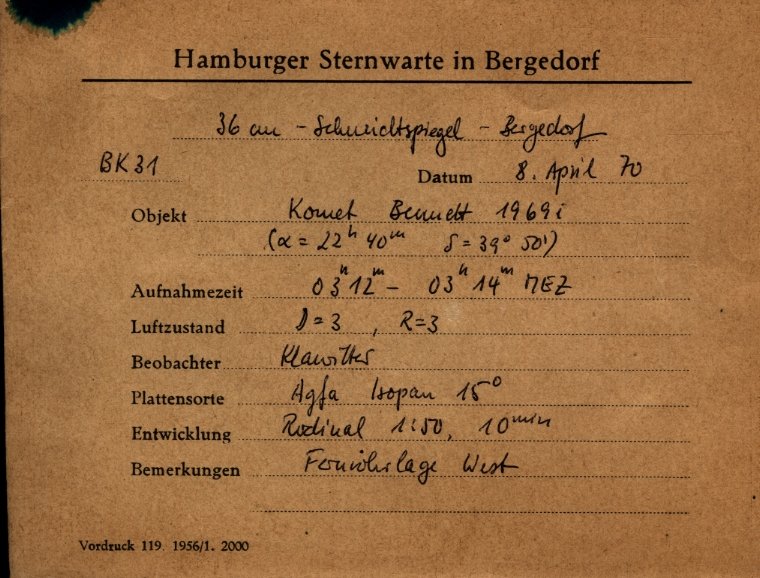 Hamburger Sternwarte in Bergedorf
36 cm - Schmidtspiegel - Bergedorf
BK31 Datum 8. April 70
Objekt Komet Bennett 1969i
(α = 22h 40m δ = 39° 50')
Aufnahmezeit 03h 12m - 03h 14m MEZ
Luftzustand = 3, R = 3
Beobachter Klawitter
Plattensorte Agfa Isopan 15°
Entwicklung Rodinal 1:50, 10min
Bemerkungen Fernrohrlage West
Vordruck 119. 1956/1. 2000